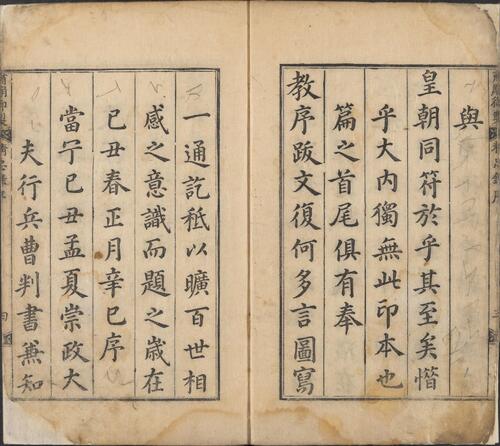 與
皇朝同符於乎其至矣惜
乎大内獨無此印本也
篇之首尾俱有奉
教序跋文復何多言圖寫
一通訖秪以曠百世相
感之意識而題之歲在
己丑春正月辛巳序
當宁己丑孟夏崇政大
夫行兵曹判書兼知